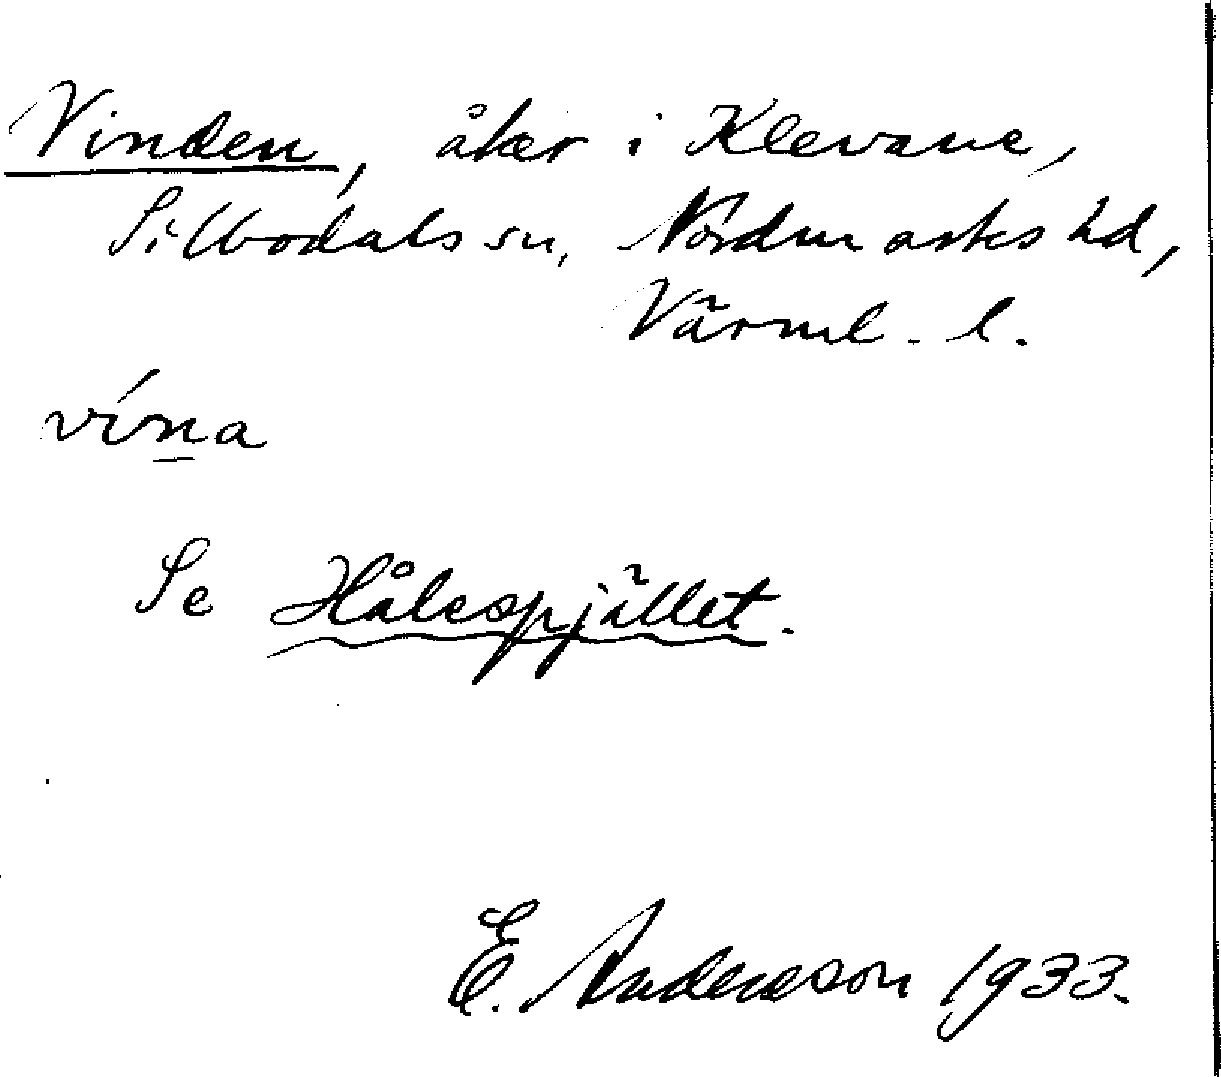 Vinden, åker i Klevane,
Silbodals sn, Nordmarks hd,
Värml. l.
vína
Se Hålespjället.
E. Anderson 1933.